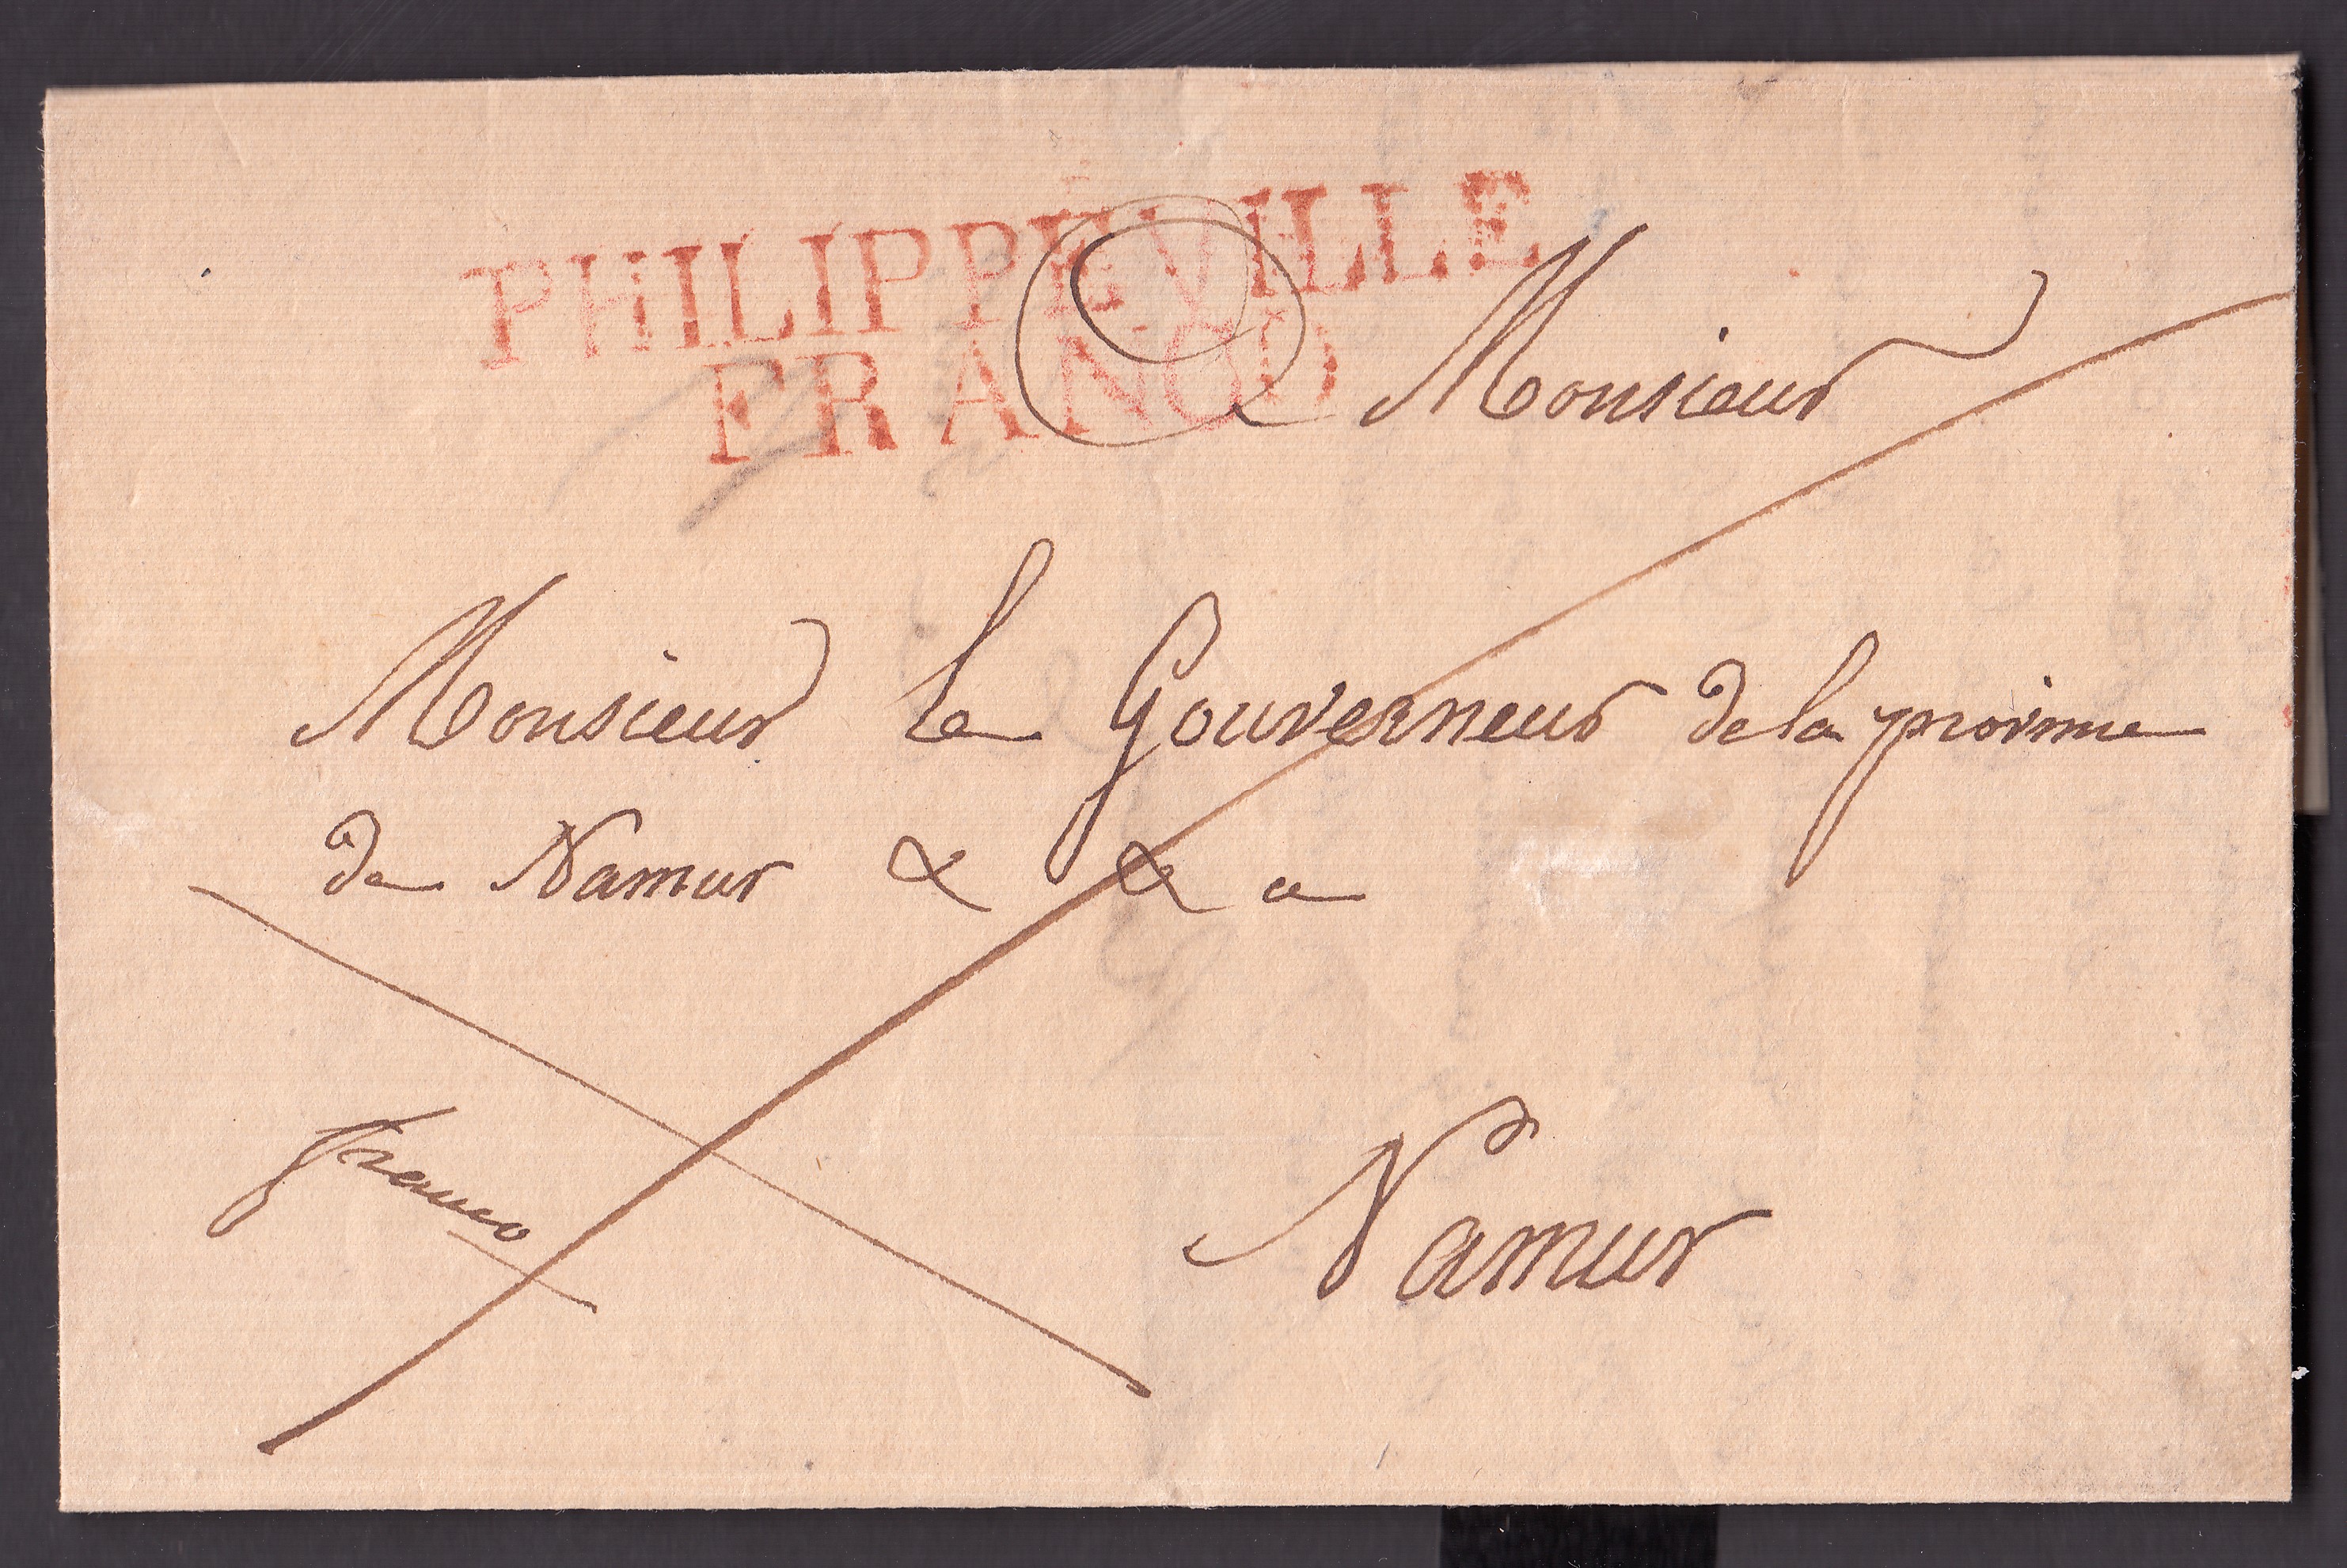 PHILIPPEVILLE
FRANCO
A Monsieur
Monsieur le Gouverneur de la province
de Namur & & a
franco
Namur